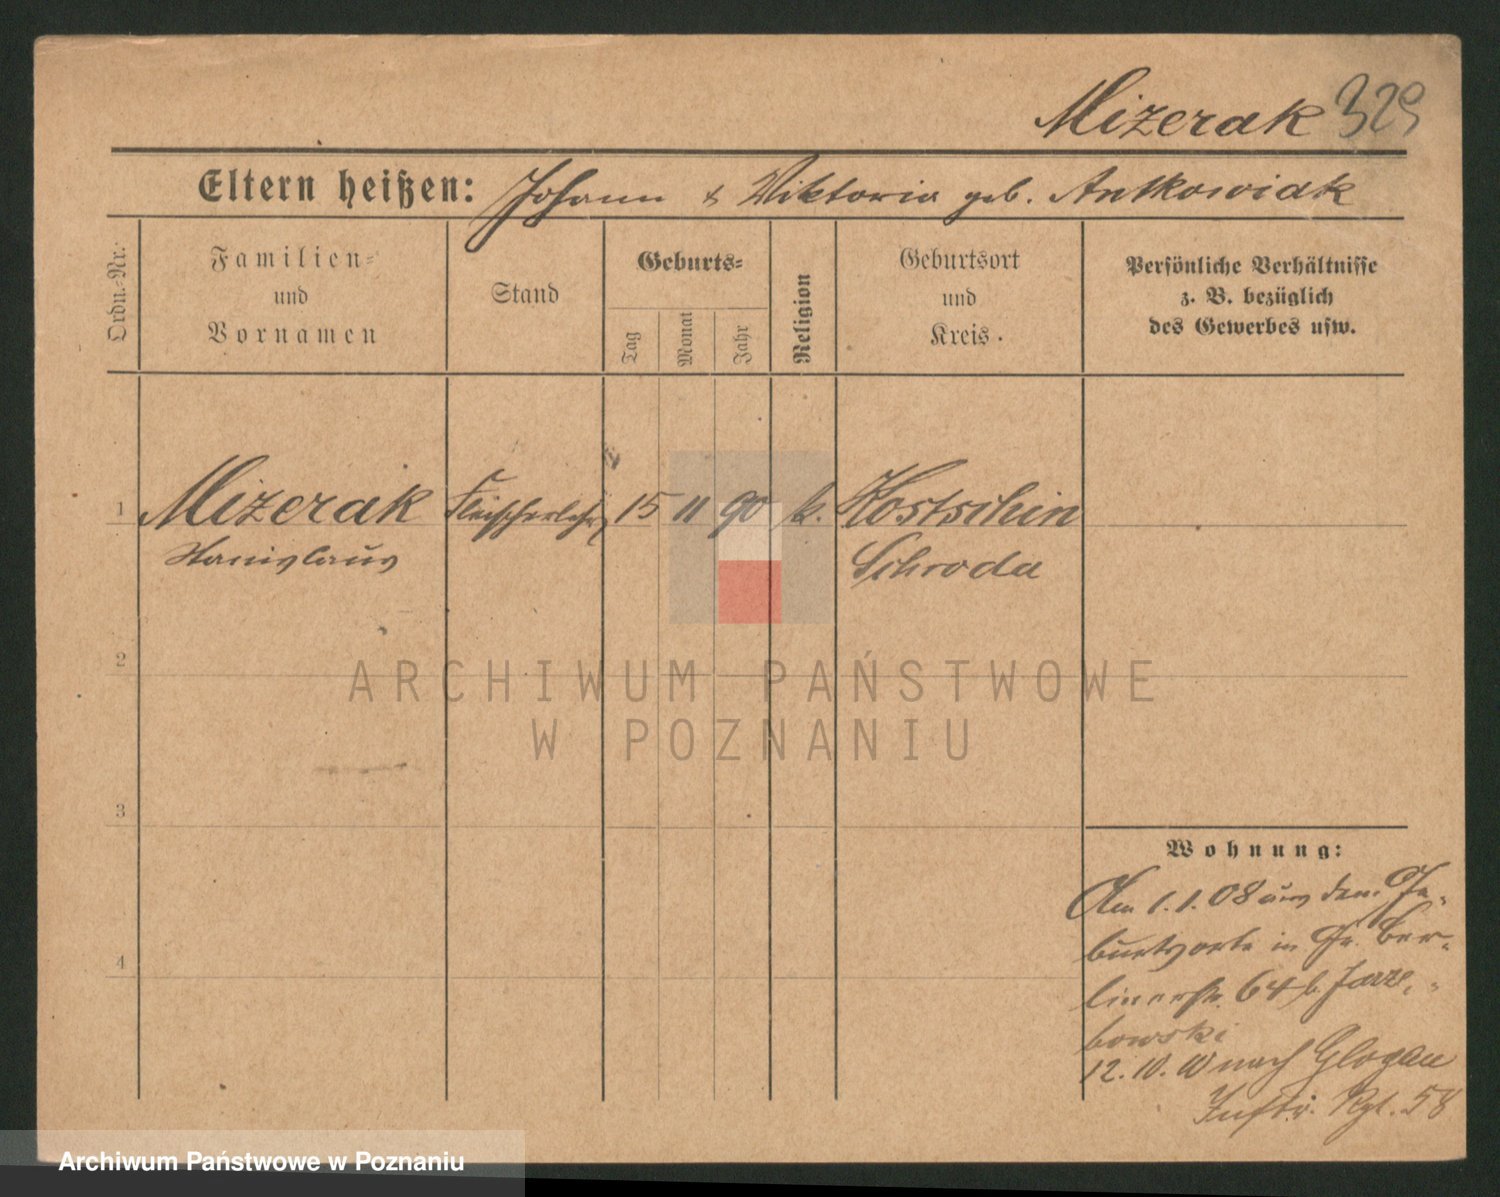 Mizerak 329
Eltern heißen: Johann & Viktoria geb. Antkowiak
Ordn.-Nr.
Familien-
und
Vornamen
Stand
Geburts-
Tag
Monat
Jahr
Religion
Geburtsort
und
Kreis.
Persönliche Verhältnisse
z. B. bezüglich
des Gewerbes usw.
1 Mizerak Fleischerlehrl 15 11 90 k. Kostschin
Stanislaus Schroda
2
ARCHIWUM PAŃSTWOWE
W POZNANIU
3
Wohnung:
Am 1.1.08 aus dem Ge-
burtsorte in Gr. Ber-
linerstr. 64 b. Jarze-
bowski
4
12.10.10 nach Glogau
Inftr. Rgt. 58
Archiwum Państwowe w Poznaniu